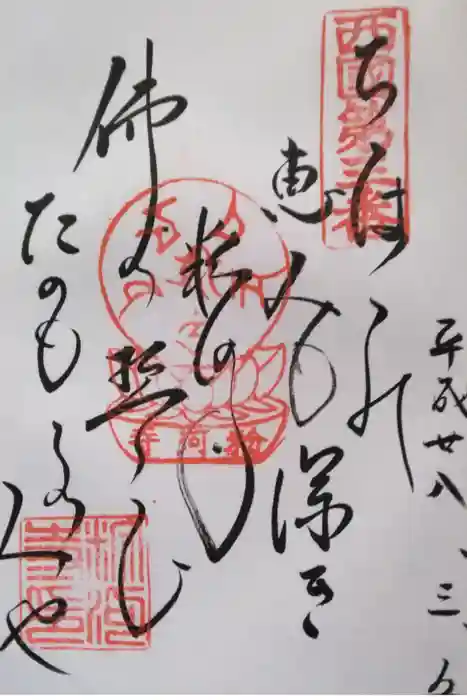 西國第三番
平成廿八、三、
ちゝはゝの
恵みも深き
粉
佛の誓ひ
たのもしの
みや
粉河寺
粉河寺印